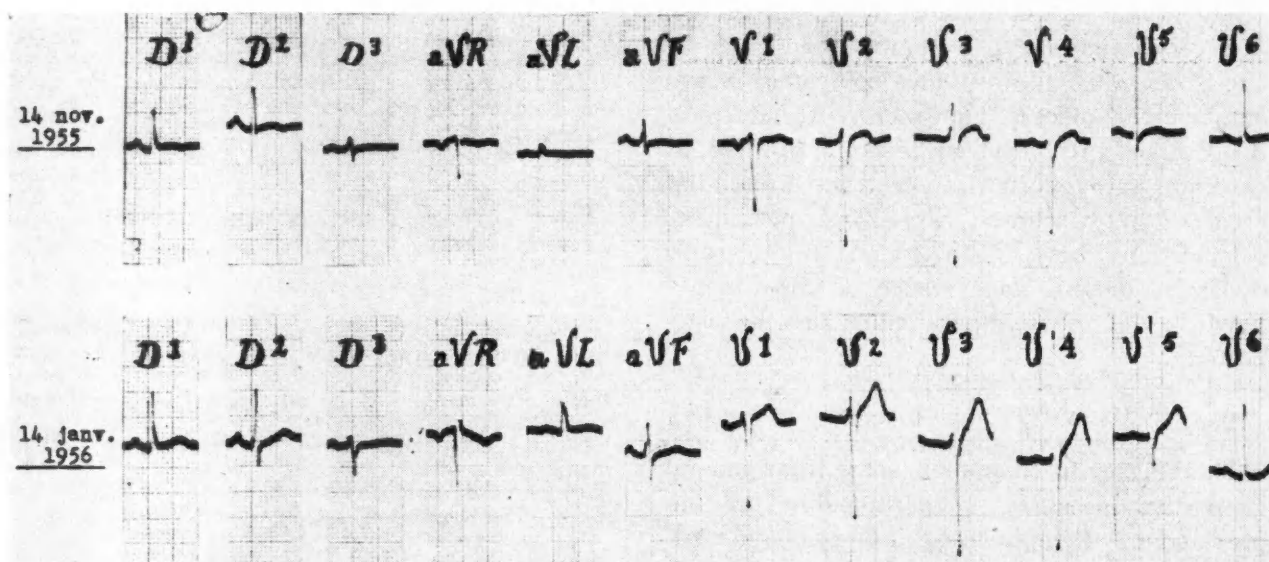 D1 D2 D3 aVR aVL aVF V1 V2 V3 V4 V5 V6
14 nov.
1955
D1 D2 D3 aVR aVL aVF V1 V2 V3 V4 V5 V6
14 janv.
1956